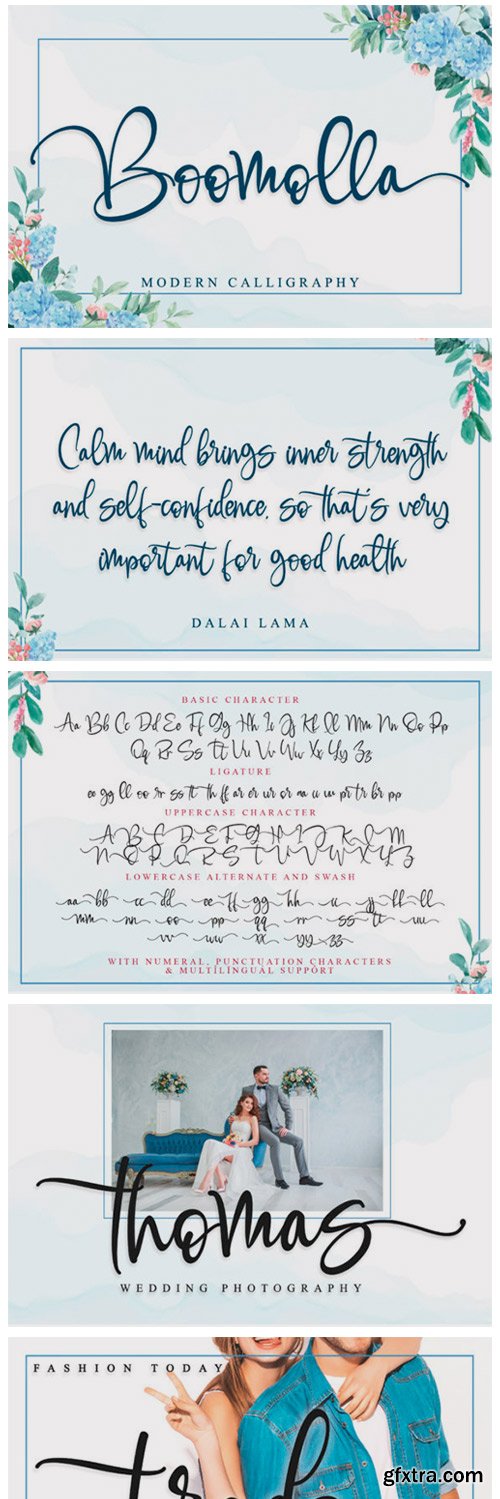 Boomolla
MODERN CALLIGRAPHY
Calm mind brings inner strength
and self-confidence, so that's very
important for good health
DALAI LAMA
BASIC CHARACTER
Aa Bb Cc Dd Ee Ff Gg Hh Ii Jj Kk Ll Mm Nn Oo Pp
Qq Rr Ss Tt Uu Vv Ww Xx Yy Zz
LIGATURE
ee gg ll oo rr ss tt th ff ar er ur or aa ii uu pr tr br pp
UPPERCASE CHARACTER
A B C D E F G H I J K L M
N O P Q R S T U V W X Y Z
LOWERCASE ALTERNATE AND SWASH
aa bb cc dd ee ff gg hh ii jj kk ll
mm nn oo pp qq rr ss tt uu
vv ww xx yy zz
WITH NUMERAL, PUNCTUATION CHARACTERS
& MULTILINGUAL SUPPORT
thomas
WEDDING PHOTOGRAPHY
FASHION TODAY
gfxtra.com